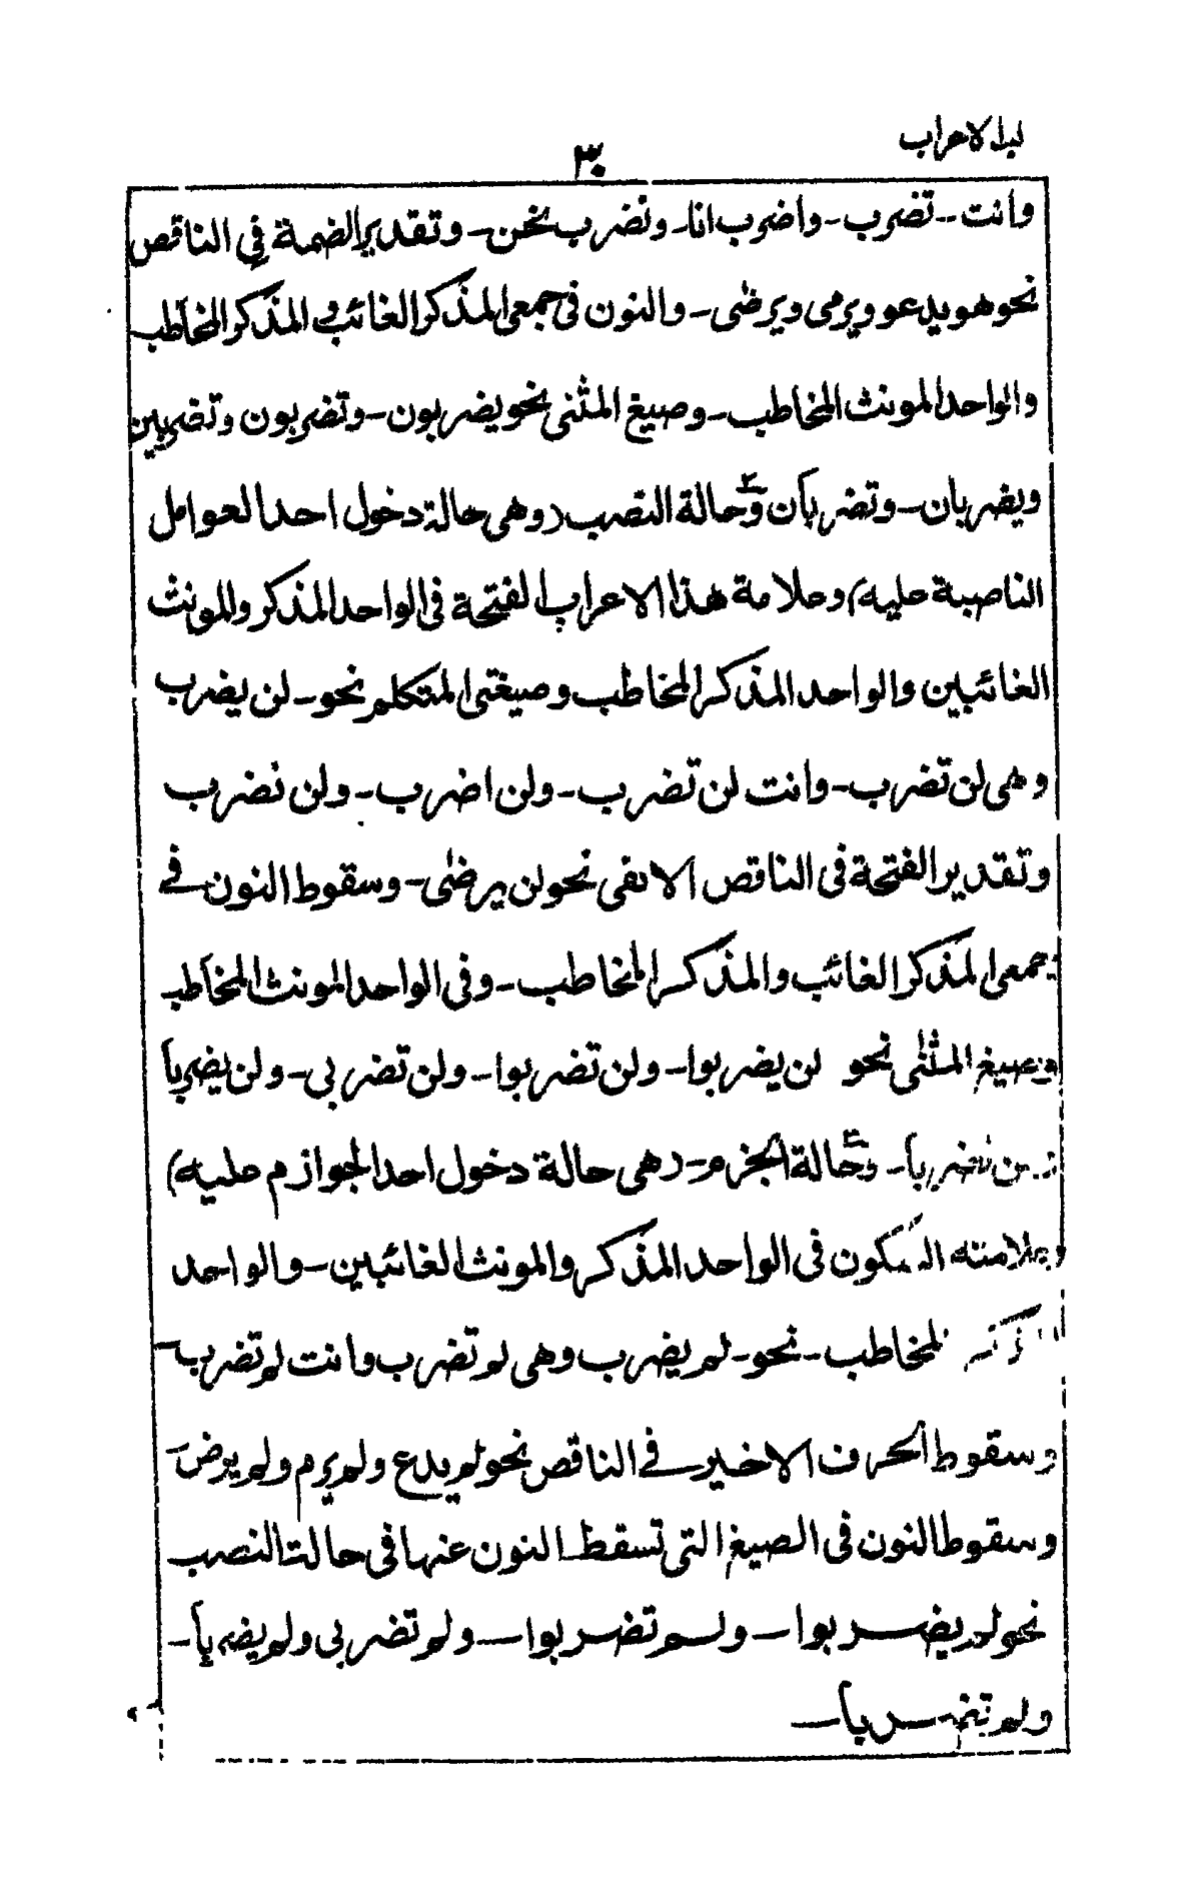 لب الاعراب
٣٠
وانت - تضرب - واضرب انا - ونضرب نحن - وتقدير الضمة في الناقص
نحو هو يدعو ويرمى ويرضٰى - والنون فى جمعى المذكر الغائب و المذكر المخاطب
والواحد المونث المخاطب - وصيغ المثنى نحو يضربون - وتضربون وتضربين
ويضربان - وتضربان وحالة النصب (وهى حالة دخول احد العوامل
الناصبة عليه) وعلامة هذا الاعراب الفتحة فى الواحد المذكر والمونث
الغائبين والواحد المذكر المخاطب وصيغتى المتكلم نحو - لن يضرب
وهى لن تضرب - وانت لن تضرب - ولن اضرب - ولن نضرب
وتقدير الفتحة فى الناقص الالفى نحو لن يرضٰى - وسقوط النون في
جمعى المذكر الغائب والمذكر المخاطب - وفى الواحد المونث المخاطب
وصيغ المثنٰى نحو لن يضربوا - ولن تضربوا - ولن تضربى - ولن يضربا
ولن تضربا - وحالة الجزم - (هى حالة دخول احد الجوازم عليه)
وعلامته السكون فى الواحد المذكر والمونث الغائبين - والواحد
المذكر المخاطب - نحو - لم يضرب وهى لم تضرب وانت لم تضرب -
وسقوط الحرف الاخير في الناقص نحو لم يدع ولم يرم ولم يرض -
وسقوط النون فى الصيغ التى تسقط النون عنها فى حالت النصب
نحو لم يضربوا - ولم تضربوا - ولم تضربى ولم يضربا -
ولم تضربا -